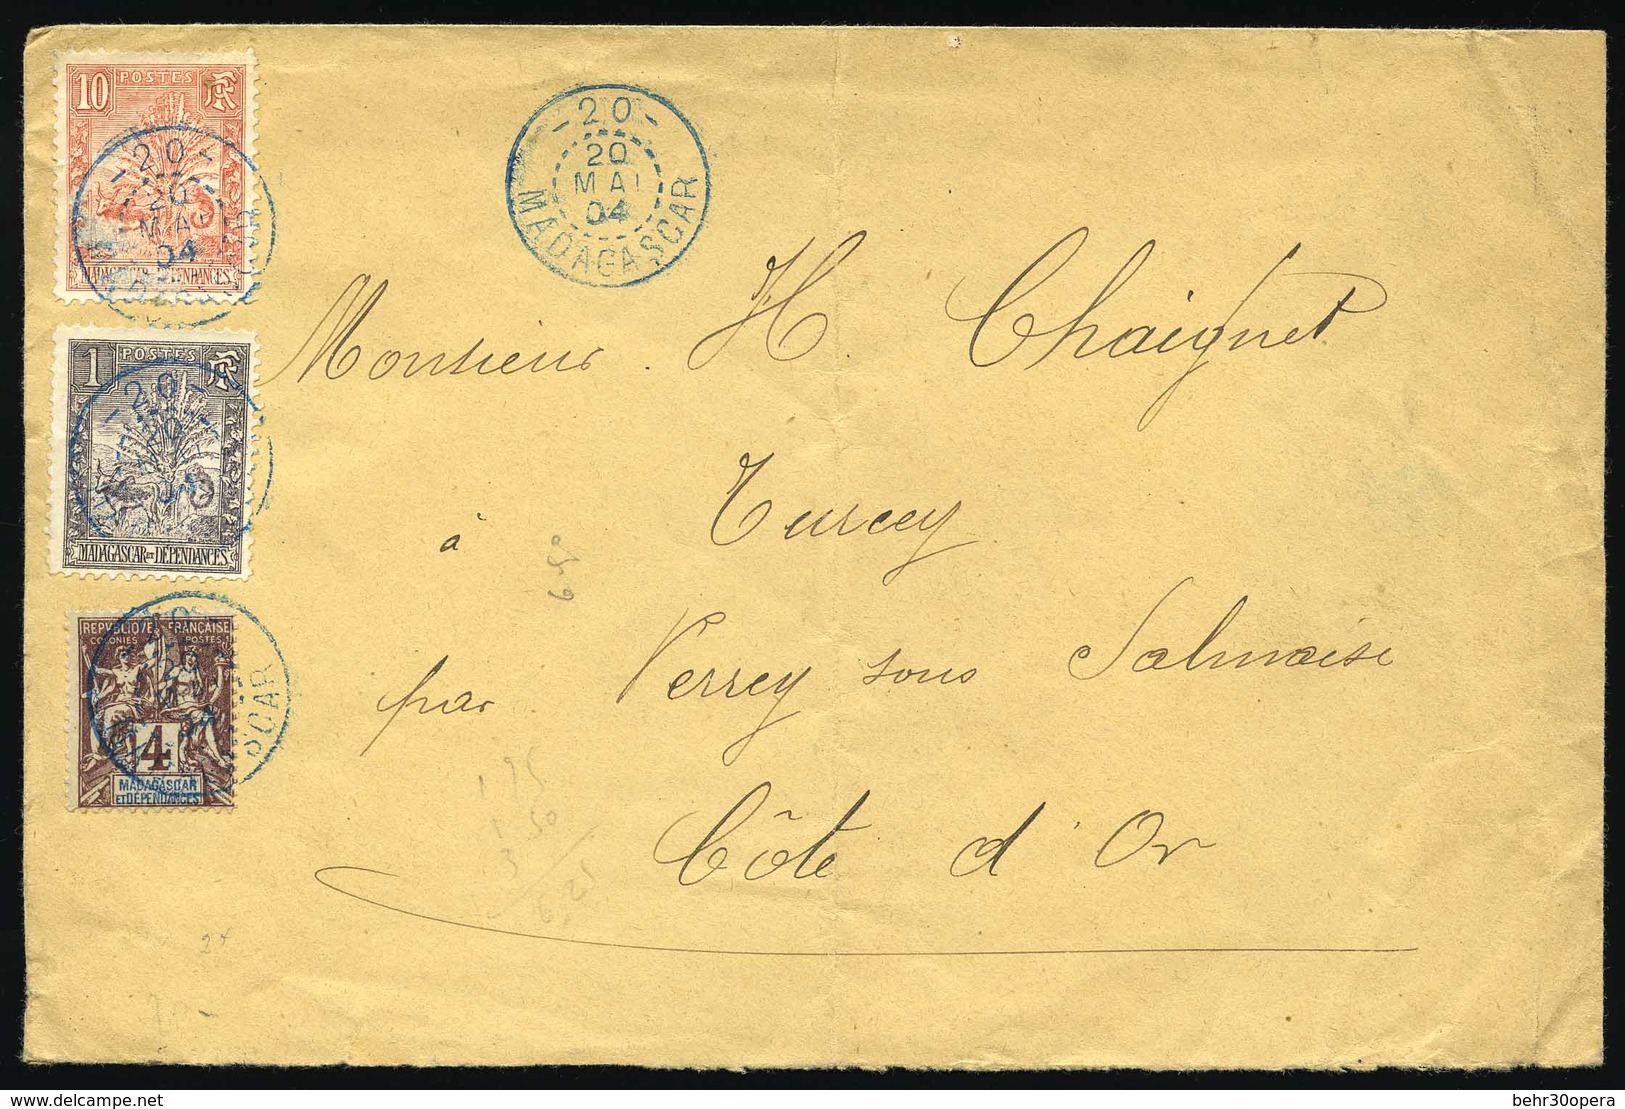 10 POSTES RF
MADAGASCAR ET DÉPENDANCES
- 20 -
20
MAI
04
MADAGASCAR
- 20 -
20
MAI
04
MADAGASCAR
1 POSTES RF
- 20 -
20
04
MADAGASCAR ET DÉPENDANCES
REPVBLIQVE FRANÇAISE
COLONIES POSTES
4
MADAGASCAR
ET DÉPENDANCES
Monsieur H. Chaignet
à Turcey
par Verrey sous Salmaise
Côte d'Or
1 95
1 50
3
6,25
24
delcampe.net
behr30opera